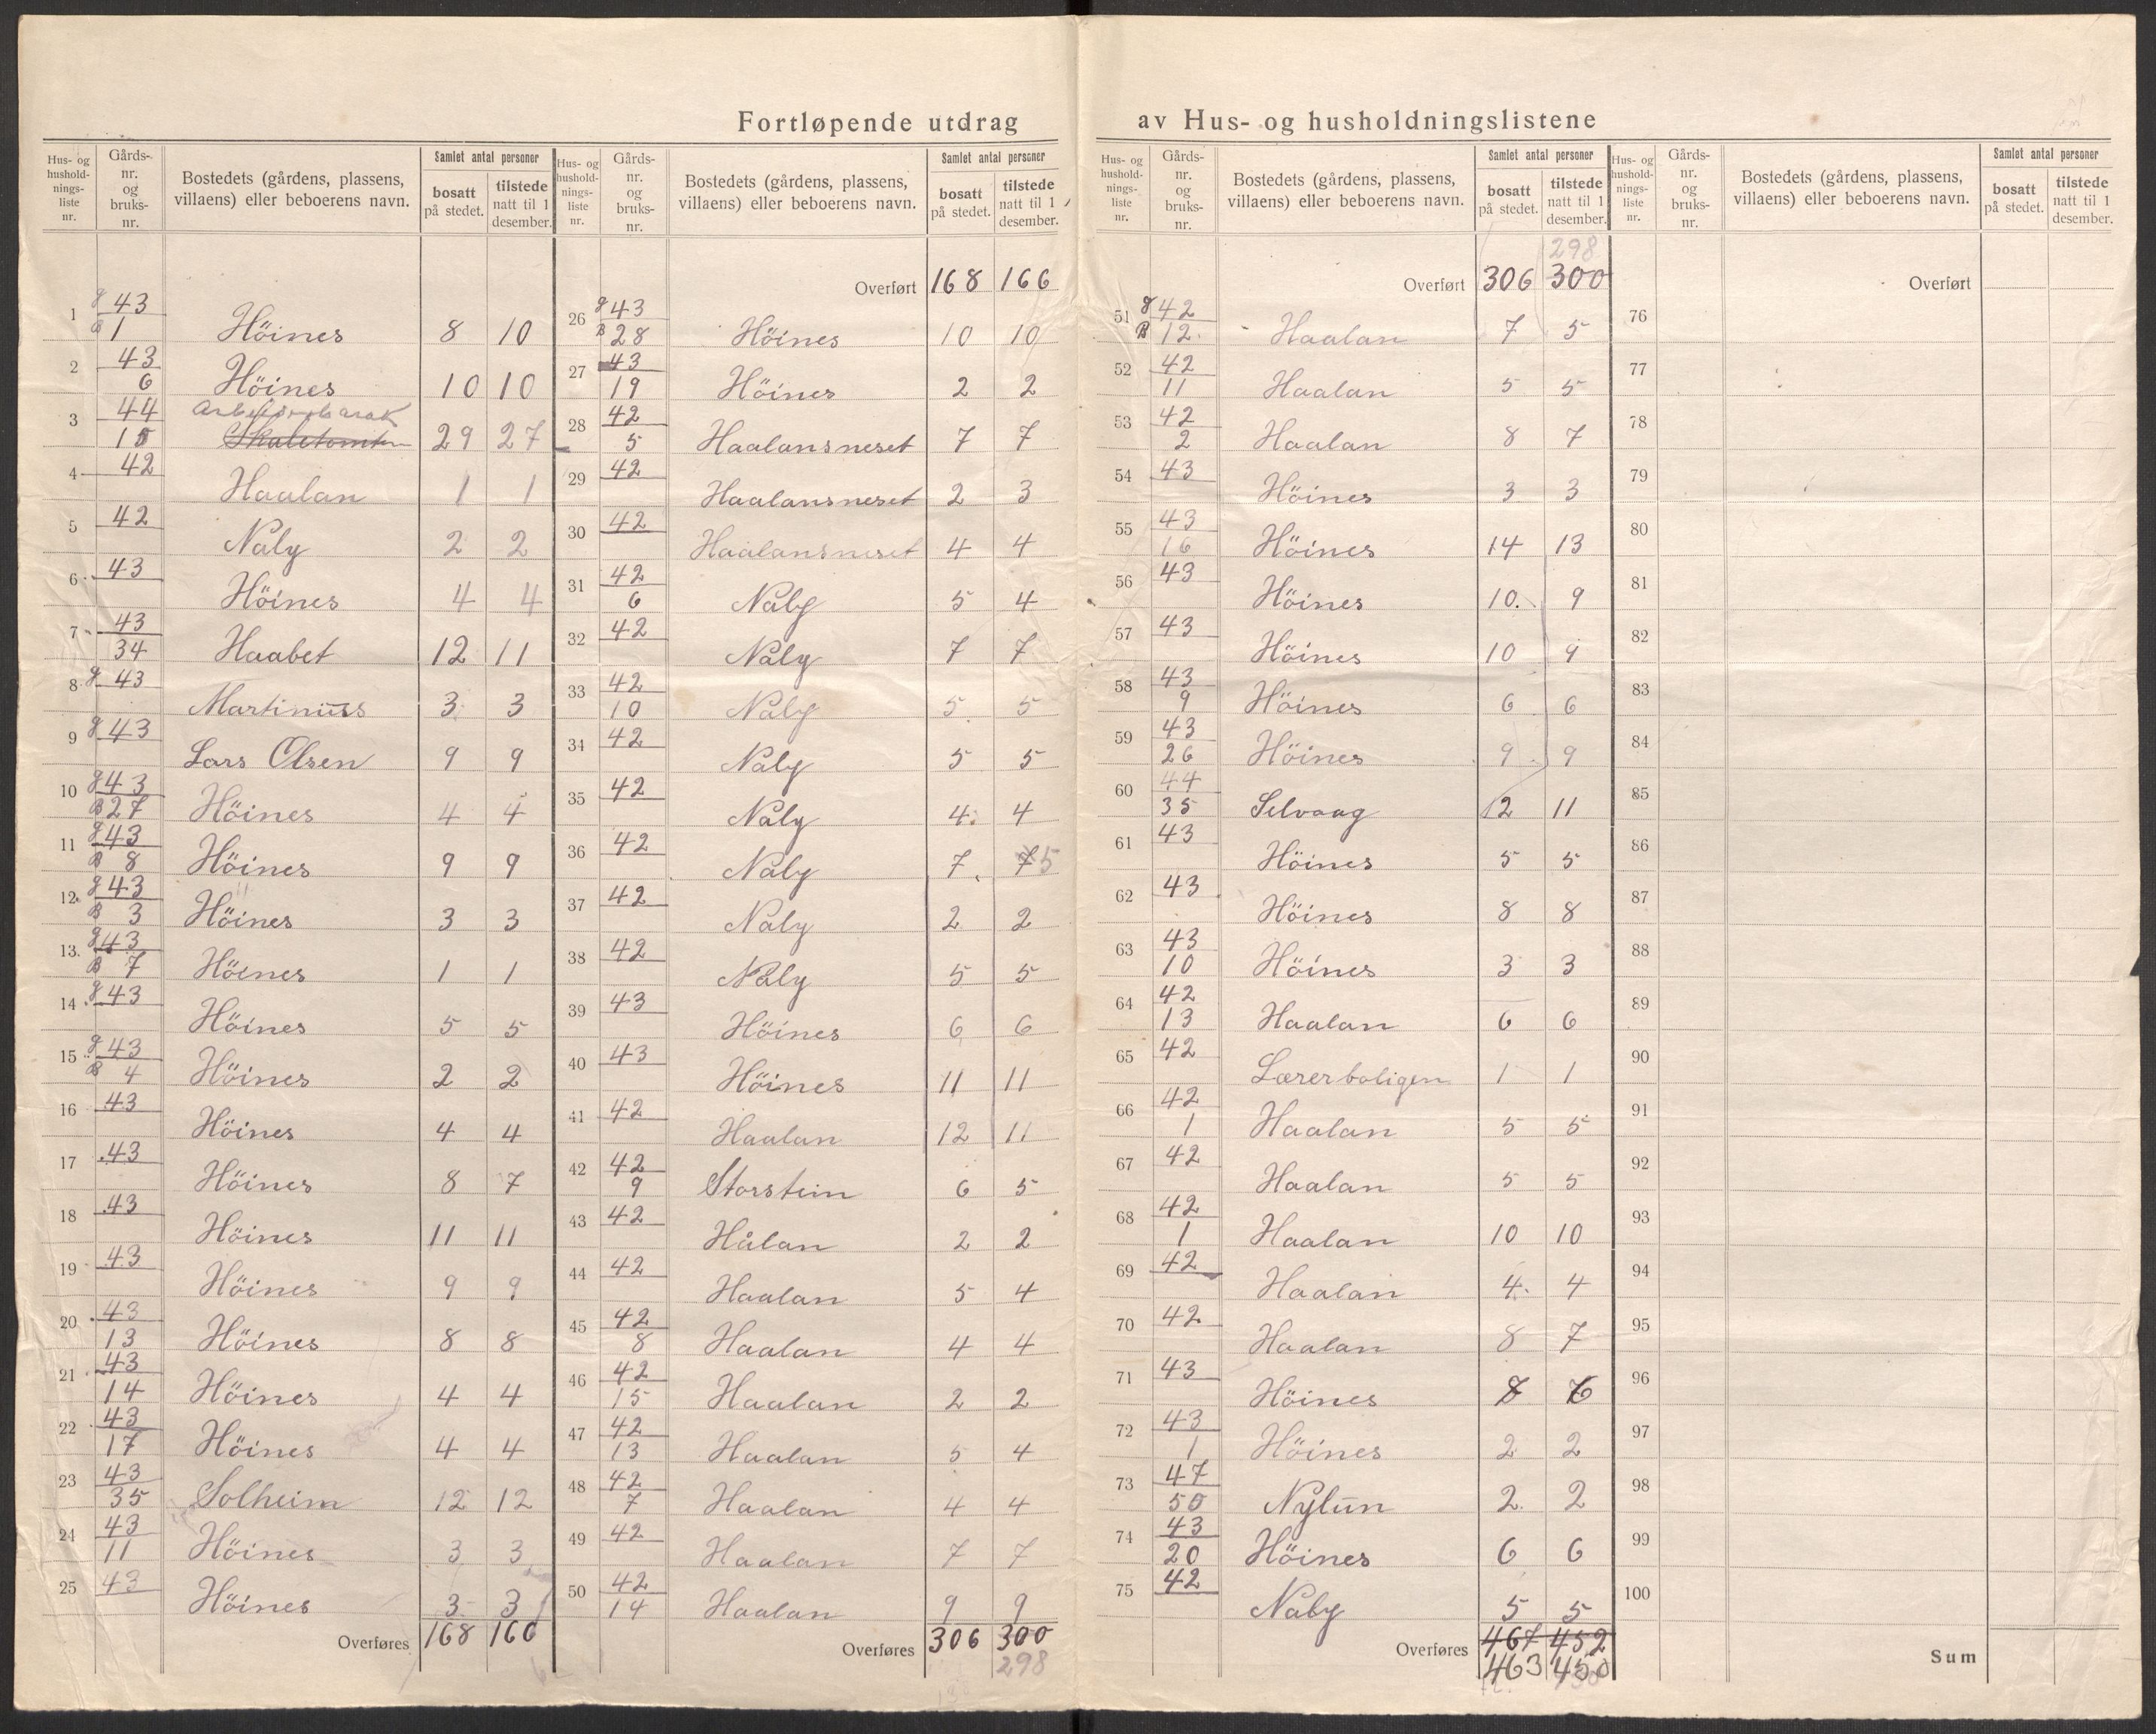 Fortløpende utdrag av Hus- og husholdningslistene
Hus- og husholdningsliste nr. | Gårds-nr. og bruks-nr. | Bostedets (gårdens, plassens, villaens) eller beboerens navn. | Samlet antal personer: bosatt på stedet. | tilstede natt til 1 desember.
1 | g 43 B 1 | Höines | 8 | 10
2 | 43 6 | Höines | 10 | 10
3 | 44 15 | Arbeiderbarak Skaletomten | 29 | 27
4 | 42 | Haalan | 1 | 1
5 | 42 | Naly | 2 | 2
6 | 43 | Höines | 4 | 4
7 | 43 34 | Haabet | 12 | 11
8 | g 43 | Martinius | 3 | 3
9 | g 43 | Lars Olsen | 9 | 9
10 | g 43 B 27 | Höines | 4 | 4
11 | g 43 B 8 | Höines | 9 | 9
12 | g 43 B 3 | Höines | 3 | 3
13 | g 43 B 7 | Höines | 1 | 1
14 | g 43 | Höines | 5 | 5
15 | g 43 B 4 | Höines | 2 | 2
16 | 43 | Höines | 4 | 4
17 | 43 | Höines | 8 | 7
18 | 43 | Höines | 11 | 11
19 | 43 | Höines | 9 | 9
20 | 43 13 | Höines | 8 | 8
21 | 43 14 | Höines | 4 | 4
22 | 43 17 | Höines | 4 | 4
23 | 43 35 | Solheim | 12 | 12
24 | 43 11 | Höines | 3 | 3
25 | 43 | Höines | 3 | 3
Overføres | 168 | 166
Hus- og husholdningsliste nr. | Gårds-nr. og bruks-nr. | Bostedets (gårdens, plassens, villaens) eller beboerens navn. | Samlet antal personer: bosatt på stedet. | tilstede natt til 1 desember.
Overført | 168 | 166
26 | g 43 B 28 | Höines | 10 | 10
27 | 43 19 | Höines | 2 | 2
28 | 42 5 | Haalansneset | 7 | 7
29 | 42 | Haalansneset | 2 | 3
30 | 42 | Haalansneset | 4 | 4
31 | 42 6 | Naly | 5 | 4
32 | 42 | Naly | 7 | 7
33 | 42 10 | Naly | 5 | 5
34 | 42 | Naly | 5 | 5
35 | 42 | Naly | 4 | 4
36 | 42 | Naly | 7 | 7 5
37 | 42 | Naly | 2 | 2
38 | 42 | Naly | 5 | 5
39 | 43 | Höines | 6 | 6
40 | 43 | Höines | 11 | 11
41 | 42 | Haalan | 12 | 11
42 | 42 9 | Storstein | 6 | 5
43 | 42 | Hålan | 2 | 2
44 | 42 | Haalan | 5 | 4
45 | 42 8 | Haalan | 4 | 4
46 | 42 15 | Haalan | 2 | 2
47 | 42 13 | Haalan | 5 | 4
48 | 42 7 | Haalan | 4 | 4
49 | 42 | Haalan | 7 | 7
50 | 42 14 | Haalan | 9 | 9
Overføres | 306 | 300
298
Hus- og husholdningsliste nr. | Gårds-nr. og bruks-nr. | Bostedets (gårdens, plassens, villaens) eller beboerens navn. | Samlet antal personer: bosatt på stedet. | tilstede natt til 1 desember.
298
Overført | 306 | 300
51 | g 42 B 12 | Haalan | 7 | 5
52 | 42 11 | Haalan | 5 | 5
53 | 42 2 | Haalan | 8 | 7
54 | 43 | Höines | 3 | 3
55 | 43 16 | Höines | 14 | 13
56 | 43 | Höines | 10 | 9
57 | 43 | Höines | 10 | 9
58 | 43 9 | Höines | 6 | 6
59 | 43 26 | Höines | 9 | 9
60 | 44 35 | Selvaag | 12 | 11
61 | 43 | Höines | 5 | 5
62 | 43 | Höines | 8 | 8
63 | 43 10 | Höines | 3 | 3
64 | 42 13 | Haalan | 6 | 6
65 | 42 | Lærerboligen | 1 | 1
66 | 42 1 | Haalan | 5 | 5
67 | 42 | Haalan | 5 | 5
68 | 42 1 | Haalan | 10 | 10
69 | 42 | Haalan | 4 | 4
70 | 42 | Haalan | 8 | 7
71 | 43 | Höines | | 6
72 | 43 1 | Höines | 2 | 2
73 | 47 50 | Nylun | 2 | 2
74 | 43 20 | Höines | 6 | 6
75 | 42 | Naly | 5 | 5
Overføres | 467 | 452
463 | 450
Hus- og husholdningsliste nr. | Gårds-nr. og bruks-nr. | Bostedets (gårdens, plassens, villaens) eller beboerens navn. | Samlet antal personer: bosatt på stedet. | tilstede natt til 1 desember.
Overført
76
77
78
79
80
81
82
83
84
85
86
87
88
89
90
91
92
93
94
95
96
97
98
99
100
Sum